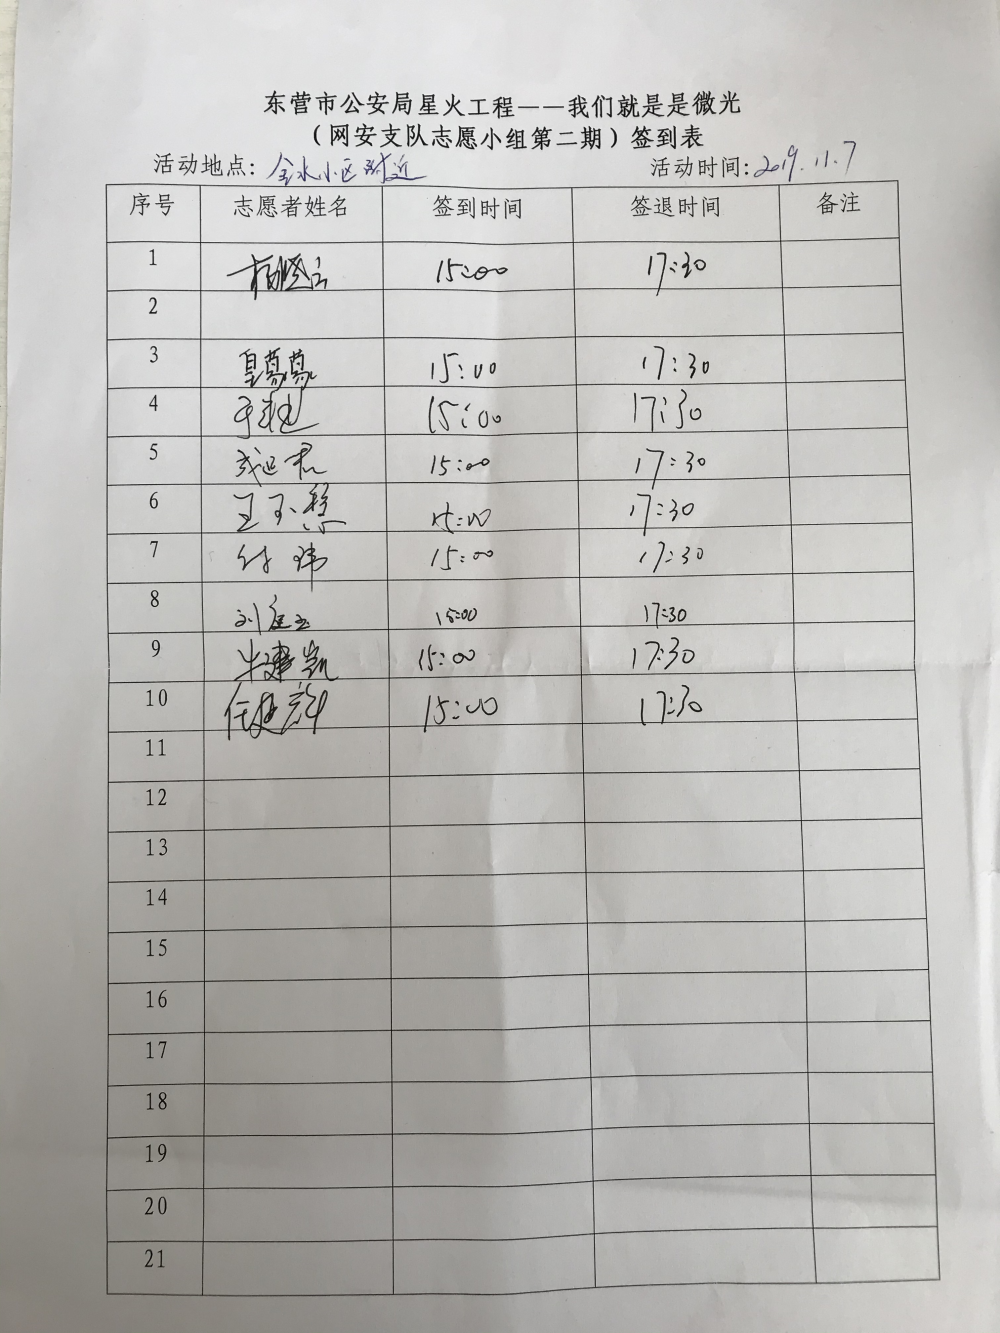 东营市公安局星火工程——我们就是是微光
（网安支队志愿小组第二期）签到表
活动地点：金水小区附近 活动时间：2019.11.7
序号 志愿者姓名 签到时间 签退时间 备注
1 15:00 17:30
2
3 15:00 17:30
4 15:00 17:30
5 15:00 17:30
6 15:00 17:30
7 付玮 15:00 17:30
8 15:00 17:30
9 牛建凯 15:00 17:30
10 15:00 17:30
11
12
13
14
15
16
17
18
19
20
21